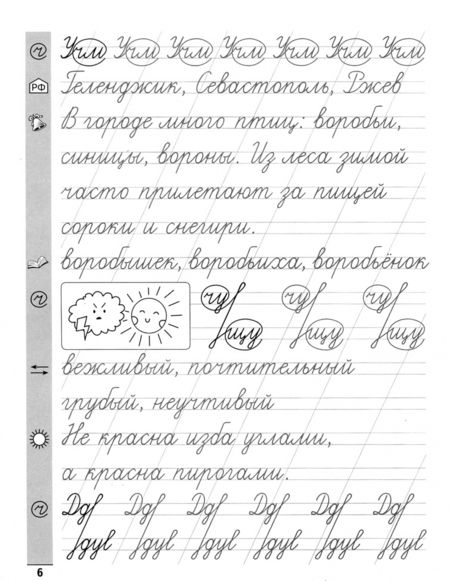 ч Учм Учм Учм Учм Учм Учм Учм
РФ Геленджик, Севастополь, Ржев
В городе много птиц: воробьи,
синицы, вороны. Из леса зимой
часто прилетают за пищей
сороки и снегири.
воробышек, воробьиха, воробьёнок
ч чу чу чу
щу щу щу
вежливый, почтительный
грубый, неучтивый
Не красна изба углами,
а красна пирогами.
ч Дд Дд Дд Дд Дд Дд
ду ду ду ду ду ду
6